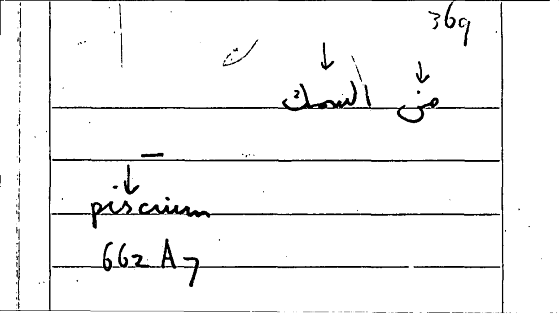 369
من السمك
piscium
662 A 7